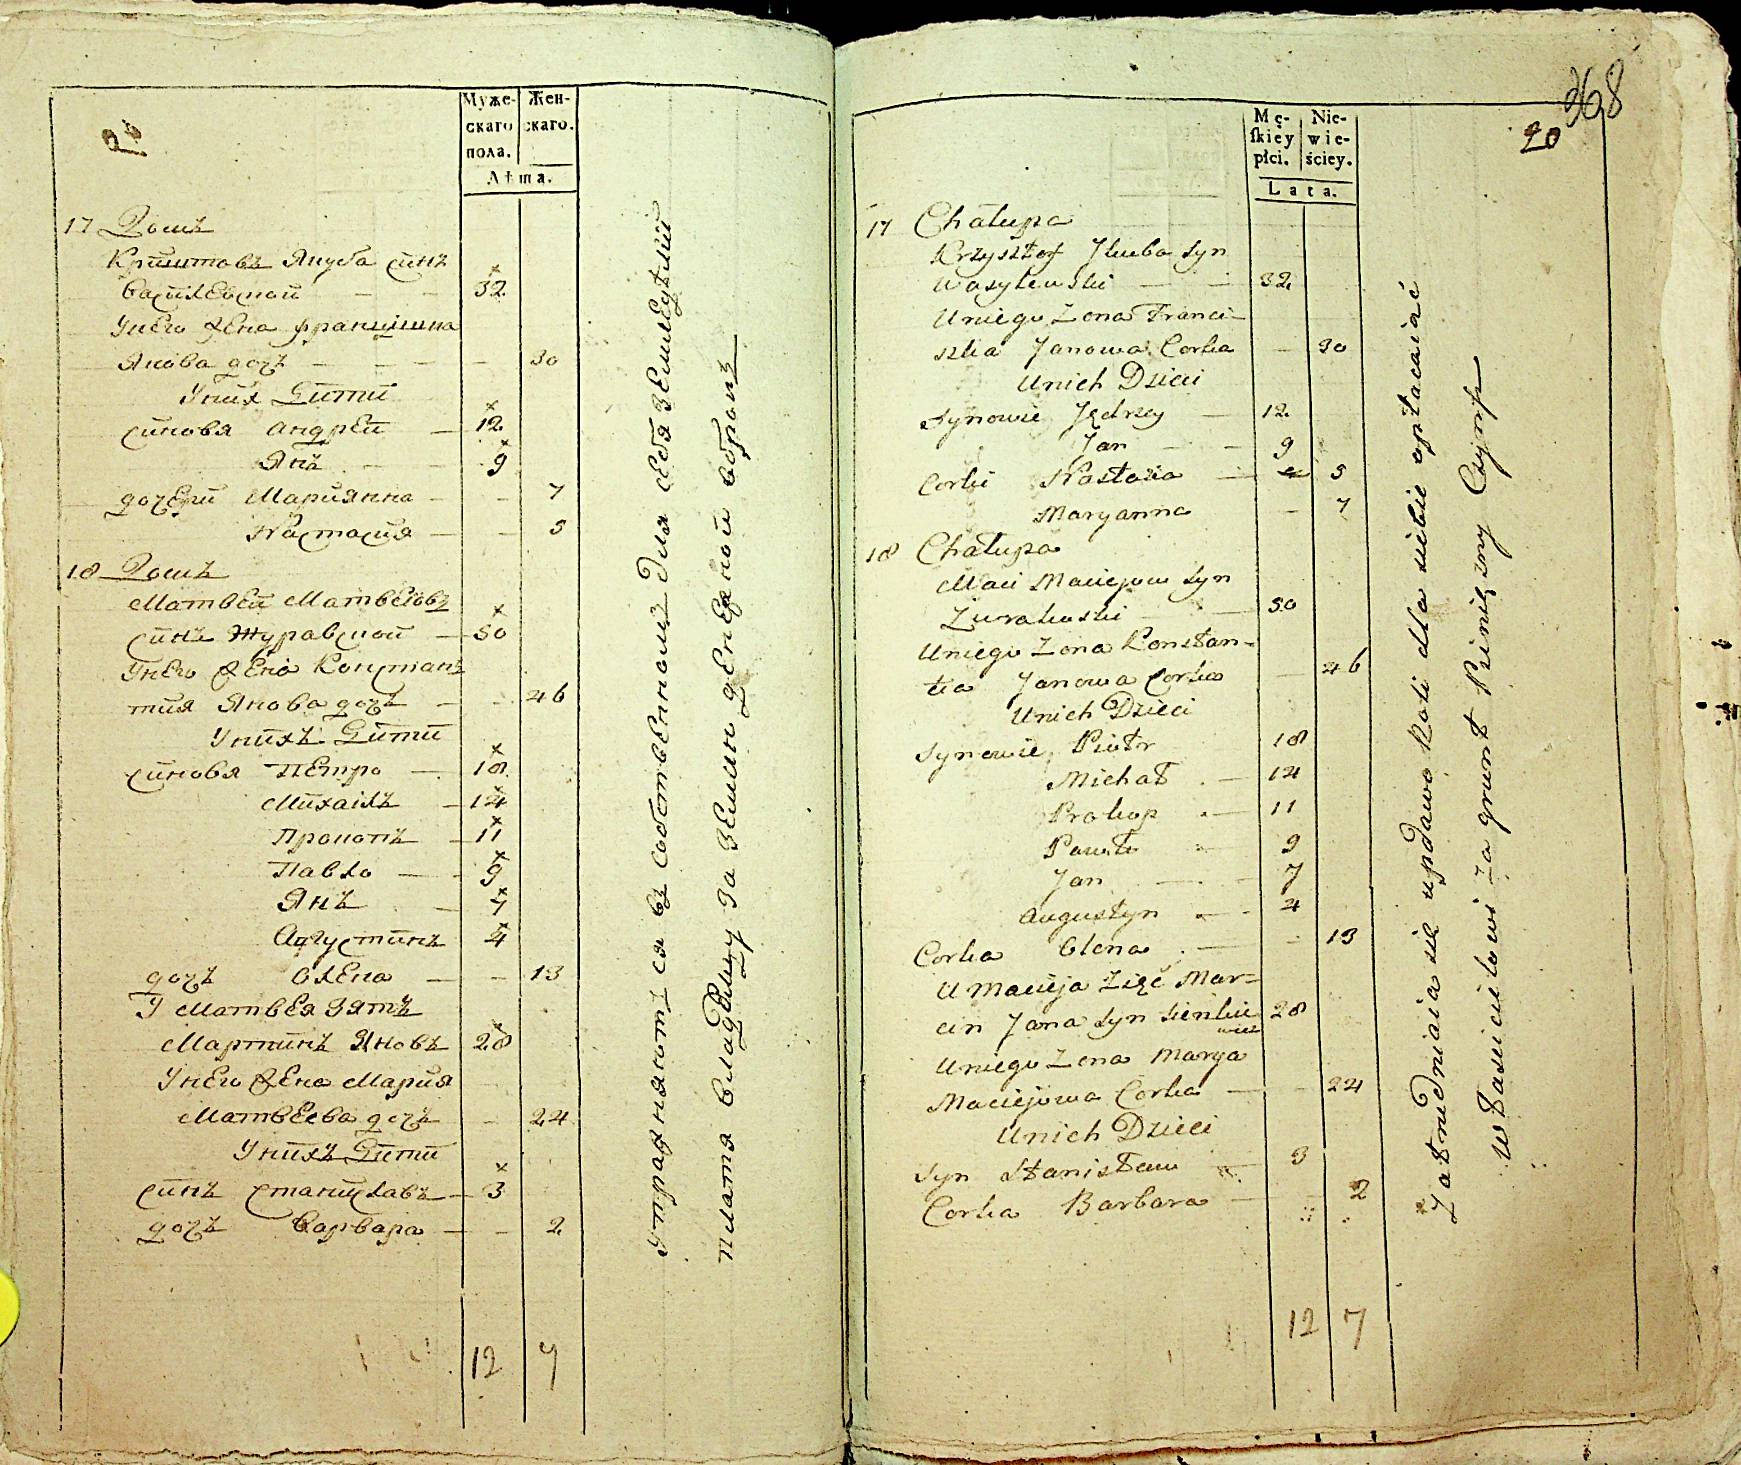 20
Муже-
скаго
пола.
Жен-
скаго.
Лѣта.
17 Домъ
Криштовъ Якуба синъ
Васылевской — — 32
Унего Жена францишка
Янова дочъ — — — — 30
Унихъ Дити
синовя Андрей — 12
Янъ — — 9
дочери Марианна — — 7
Настасия — — 5
18 Домъ
Матвей Матвеювъ
синъ Журавской — 50
Унего Жена Констан-
тия Янова дочъ — — 46
Унихъ Дити
синовя Петро — 18
Михаилъ — 14
Прокопъ — 11
Павло — — 9
Янъ — 7
Августинъ 4
дочъ Олена — — 13
У Матвея Зять
Мартинъ Яновъ 28
Унего Жена Мария
Матвеева дочъ — 24
Унихъ Дити
синъ Станиславъ — 3
дочъ Варвара — — 2
12 7
Упражняются въ собственномъ для себя земледѣлии
платя владѣлцу за землю денежной оброкъ
368
20
Mę-
skiey
płci.
Nie-
wie-
ściey.
Lata.
17 Chałupa
Krzysztof Jkuba Syn
Wasylewski — — 32
Uniego Zona Franci-
szka Janowa Corka — 30
Unich Dzieci
Synowie Jędrzey — 12
Jan — — 9
Corki Nastazia — 5
Maryanna — 7
18 Chałupa
Maci Maciejow Syn
Zurakoski — 50
Uniego Zona Konstan-
tia Janowa Corka — 46
Unich Dzieci
Synowie Piotr 18
Michał — 14
Prokop — 11
Paweł — 9
Jan — — 7
Augustyn — 4
Corka Olena — — 13
U Macieja Zięć Mar-
cin Jana Syn Sienkie
wicz 28
Uniego Zona Marya
Maciejowa Corka — — 24
Unich Dzieci
Syn Stanisław — 3
Corka Barbara — 2
12 7
Zatrudniaia się uprawą Roli dla siebie opłacaiąc
właścicielowi za grunt Pieniężny Czynsz